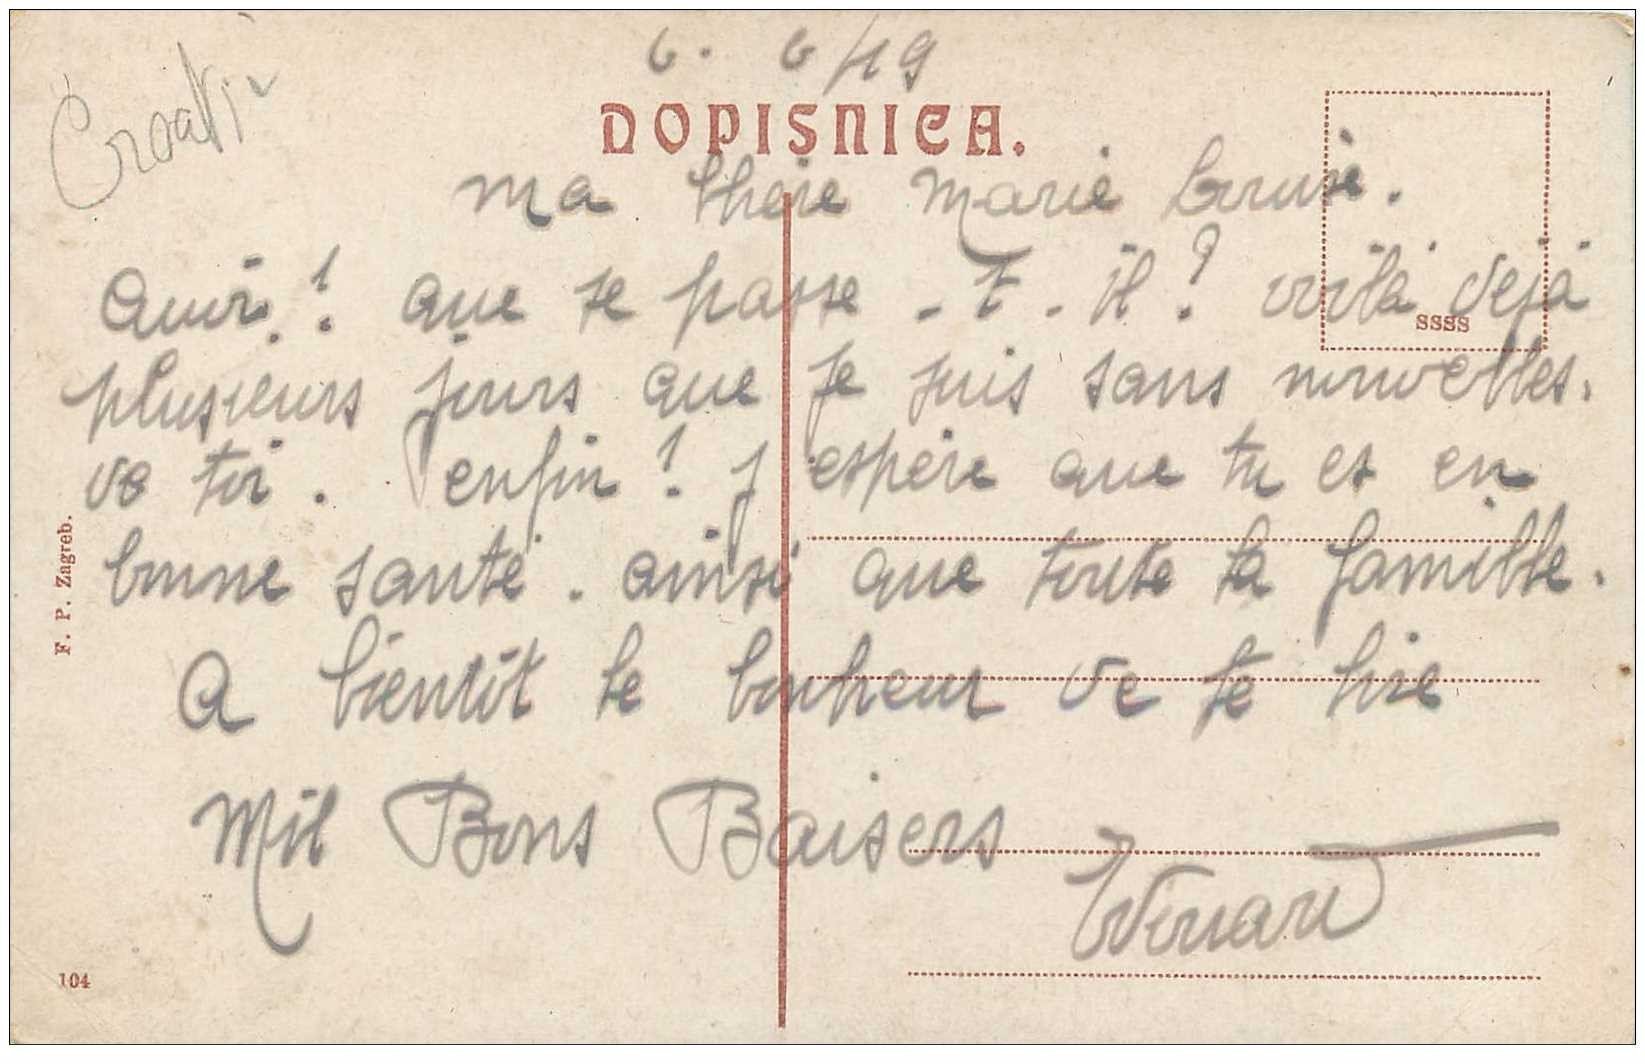 Croatie
6. 6/19
DOPISNICA.
ma chère Marie Louise.
Quoi! que se passe-t-il? voilà déjà
ssss
plusieurs jours que je suis sans nouvelles.
de toi. enfin! j'espère que tu es en
bonne santé. ainsi que toute ta famille.
A bientôt le bonheur de te lire
Mil Bons Baisers
Edouard
F. P. Zagreb.
104